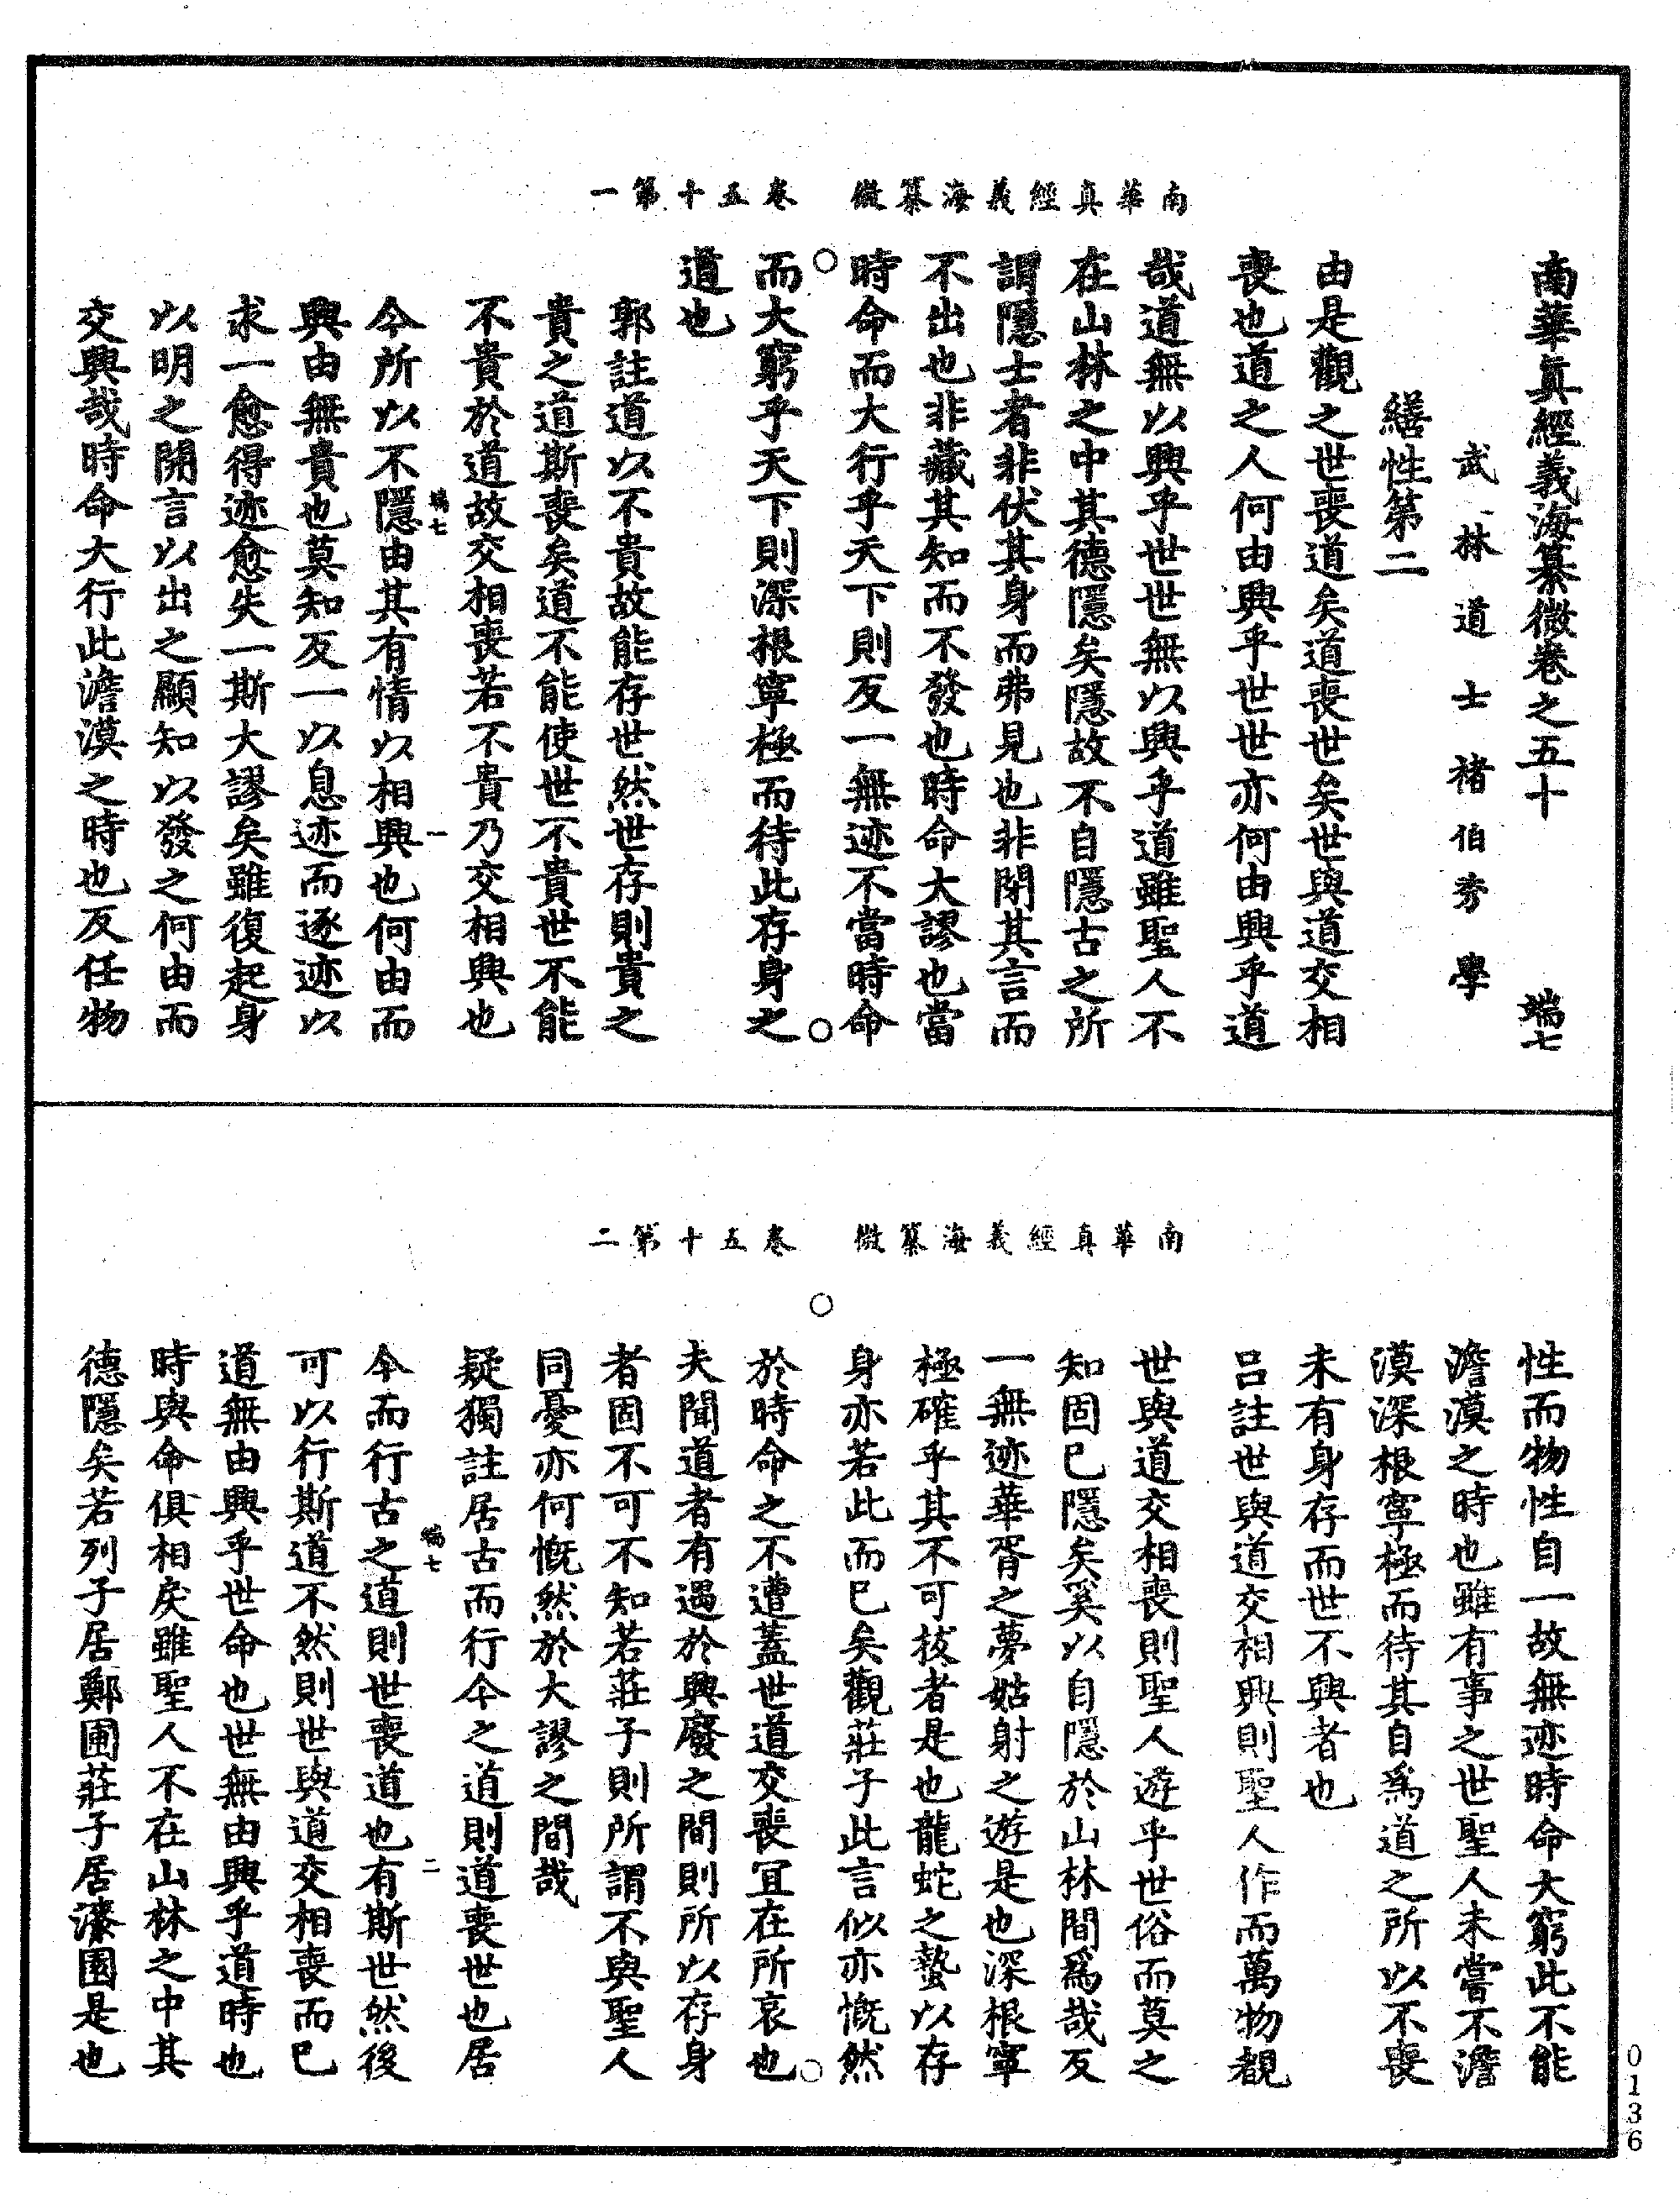 南華真經義海纂微　卷五十第一
南華真經義海纂微卷之五十　端七
武林道士褚伯秀學
繕性第二
由是觀之世喪道矣道喪世矣世與道交相
喪也道之人何由興乎世世亦何由興乎道
哉道無以興乎世世無以興乎道雖聖人不
在山林之中其德隱矣隱故不自隱古之所
謂隱士者非伏其身而弗見也非閉其言而
不出也非藏其知而不發也時命大謬也當
時命而大行乎天下則反一無迹不當時命
而大窮乎天下則深根寧極而待此存身之
道也
郭註道以不貴故能存世然世存則貴之
貴之道斯喪矣道不能使世不貴世不能
不貴於道故交相喪若不貴乃交相興也
端七　一
今所以不隱由其有情以相興也何由而
興由無貴也莫知反一以息迹而逐迹以
求一愈得迹愈失一斯大謬矣雖復起身
以明之開言以出之顯知以發之何由而
交興哉時命大行此澹漠之時也反任物
南華真經義海纂微　卷五十第二
性而物性自一故無迹時命大窮此不能
澹漠之時也雖有事之世聖人未嘗不澹
漠深根寧極而待其自為道之所以不喪
未有身存而世不興者也
呂註世與道交相興則聖人作而萬物覩
世與道交相喪則聖人遊乎世俗而莫之
知固已隱矣奚以自隱於山林間為哉反
一無迹華胥之夢姑射之遊是也深根寧
極確乎其不可拔者是也龍蛇之蟄以存
身亦若此而已矣觀莊子此言似亦慨然
於時命之不遭蓋世道交喪宜在所哀也
夫聞道者有遇於興廢之間則所以存身
者固不可不知若莊子則所謂不與聖人
同憂亦何慨然於大謬之間哉
疑獨註居古而行今之道則道喪世也居
端七　二
今而行古之道則世喪道也有斯世然後
可以行斯道不然則世與道交相喪而已
道無由興乎世命也世無由興乎道時也
時與命俱相戾雖聖人不在山林之中其
德隱矣若列子居鄭圃莊子居漆園是也
0136